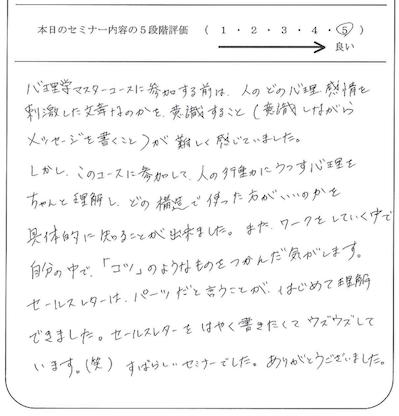 本日のセミナー内容の５段階評価　（　１　・　２　・　３　・　４　・　５　）
良い
心理学マスターコースに参加する前は、人のどの心理、感情を
刺激した文章なのかを、意識すること（意識しながら
メッセージを書くこと）が難しく感じていました。
しかし、このコースに参加して、人の行動にうつす心理を
ちゃんと理解し、どの構造で使った方がいいのかを
具体的に知ることが出来ました。また、ワークをしていく中で
自分の中で、「コツ」のようなものをつかんだ気がします。
セールスレターは、パーツだと言うことが、はじめて理解
できました。セールスレターをはやく書きたくてウズウズして
います。（笑）　すばらしいセミナーでした。ありがとうございました。